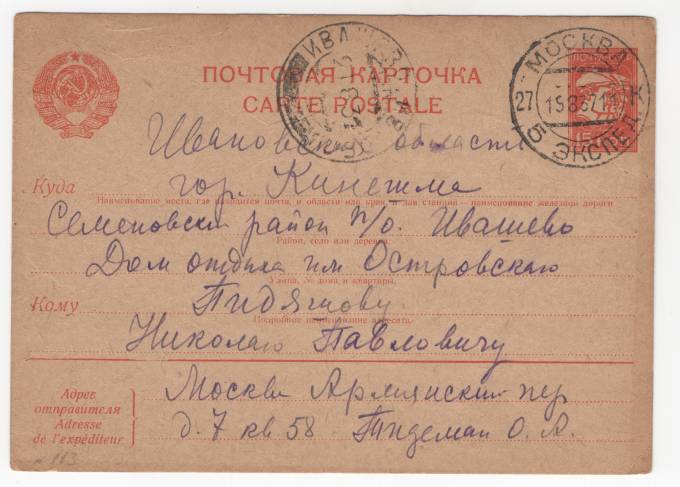 ПОЧТОВАЯ КАРТОЧКА
CARTE POSTALE
МОСКВА
27 19837 11 К
5 ЭКСПЕД.
15
Ивановская область
Куда
гор. Кинешма
Наименование места, где находится почта, и области или края, а для станций – наименование железной дороги
Семеновский район п/о. Ивашево
Район, село или деревня
Дом отдыха им Островскаго
Улица, № дома и квартиры
Кому
Подробное наименование адресата
Николаю Павловичу
Адрес отправителя
Adresse de l'expéditeur
Москва Армянский пер
д. 7 кв 58 Тидеман О. А.